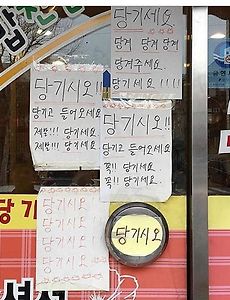 당기세요
당겨 당겨 당겨
당겨주세요
당기세요!!!!
당기시오!!
당기고 들어오세요
제발!!! 당기세요
제발!!! 당기세요
당기시오!!
당기고 들어오세요
꼭!! 당기세요
꼭!! 당기세요..
당기시오
당기시오
당기시오
당기시오
당기시오
당기